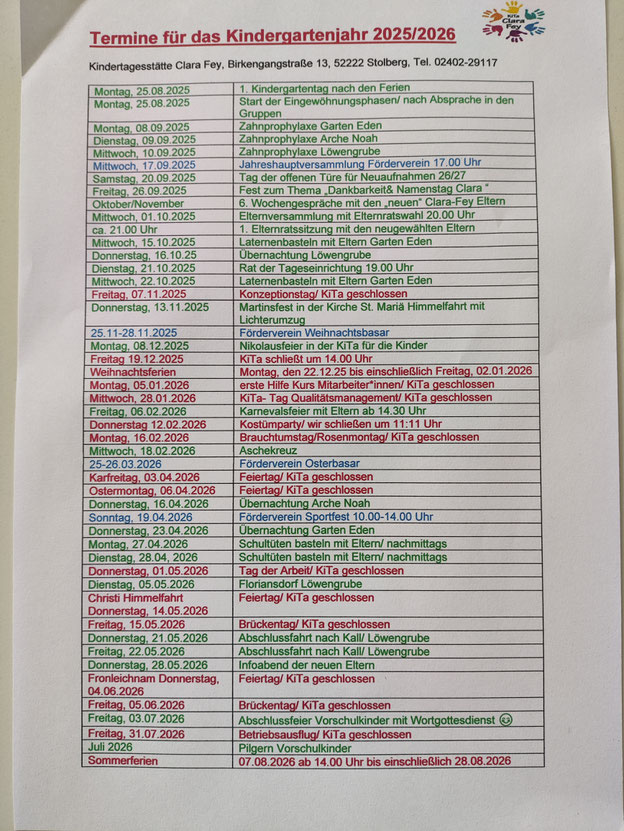 Termine für das Kindergartenjahr 2025/2026
KiTa
Clara
Fey
Kindertagesstätte Clara Fey, Birkengangstraße 13, 52222 Stolberg, Tel. 02402-29117
Montag, 25.08.2025 1. Kindergartentag nach den Ferien
Montag, 25.08.2025 Start der Eingewöhnungsphasen/ nach Absprache in den
Gruppen
Montag, 08.09.2025 Zahnprophylaxe Garten Eden
Dienstag, 09.09.2025 Zahnprophylaxe Arche Noah
Mittwoch, 10.09.2025 Zahnprophylaxe Löwengrube
Mittwoch, 17.09.2025 Jahreshauptversammlung Förderverein 17.00 Uhr
Samstag, 20.09.2025 Tag der offenen Türe für Neuaufnahmen 26/27
Freitag, 26.09.2025 Fest zum Thema „Dankbarkeit& Namenstag Clara “
Oktober/November 6. Wochengespräche mit den „neuen“ Clara-Fey Eltern
Mittwoch, 01.10.2025 Elternversammlung mit Elternratswahl 20.00 Uhr
ca. 21.00 Uhr 1. Elternratssitzung mit den neugewählten Eltern
Mittwoch, 15.10.2025 Laternenbasteln mit Eltern Garten Eden
Donnerstag, 16.10.25 Übernachtung Löwengrube
Dienstag, 21.10.2025 Rat der Tageseinrichtung 19.00 Uhr
Mittwoch, 22.10.2025 Laternenbasteln mit Eltern Garten Eden
Freitag, 07.11.2025 Konzeptionstag/ KiTa geschlossen
Donnerstag, 13.11.2025 Martinsfest in der Kirche St. Mariä Himmelfahrt mit
Lichterumzug
25.11-28.11.2025 Förderverein Weihnachtsbasar
Montag, 08.12.2025 Nikolausfeier in der KiTa für die Kinder
Freitag 19.12.2025 KiTa schließt um 14.00 Uhr
Weihnachtsferien Montag, den 22.12.25 bis einschließlich Freitag, 02.01.2026
Montag, 05.01.2026 erste Hilfe Kurs Mitarbeiter*innen/ KiTa geschlossen
Mittwoch, 28.01.2026 KiTa- Tag Qualitätsmanagement/ KiTa geschlossen
Freitag, 06.02.2026 Karnevalsfeier mit Eltern ab 14.30 Uhr
Donnerstag 12.02.2026 Kostümparty/ wir schließen um 11:11 Uhr
Montag, 16.02.2026 Brauchtumstag/Rosenmontag/ KiTa geschlossen
Mittwoch, 18.02.2026 Aschekreuz
25-26.03.2026 Förderverein Osterbasar
Karfreitag, 03.04.2026 Feiertag/ KiTa geschlossen
Ostermontag, 06.04.2026 Feiertag/ KiTa geschlossen
Donnerstag, 16.04.2026 Übernachtung Arche Noah
Sonntag, 19.04.2026 Förderverein Sportfest 10.00-14.00 Uhr
Donnerstag, 23.04.2026 Übernachtung Garten Eden
Montag, 27.04.2026 Schultüten basteln mit Eltern/ nachmittags
Dienstag, 28.04, 2026 Schultüten basteln mit Eltern/ nachmittags
Donnerstag, 01.05.2026 Tag der Arbeit/ KiTa geschlossen
Dienstag, 05.05.2026 Floriansdorf Löwengrube
Christi Himmelfahrt Feiertag/ KiTa geschlossen
Donnerstag, 14.05.2026
Freitag, 15.05.2026 Brückentag/ KiTa geschlossen
Donnerstag, 21.05.2026 Abschlussfahrt nach Kall/ Löwengrube
Freitag, 22.05.2026 Abschlussfahrt nach Kall/ Löwengrube
Donnerstag, 28.05.2026 Infoabend der neuen Eltern
Fronleichnam Donnerstag, Feiertag/ KiTa geschlossen
04.06.2026
Freitag, 05.06.2026 Brückentag/ KiTa geschlossen
Freitag, 03.07.2026 Abschlussfeier Vorschulkinder mit Wortgottesdienst ☺
Freitag, 31.07.2026 Betriebsausflug/ KiTa geschlossen
Juli 2026 Pilgern Vorschulkinder
Sommerferien 07.08.2026 ab 14.00 Uhr bis einschließlich 28.08.2026